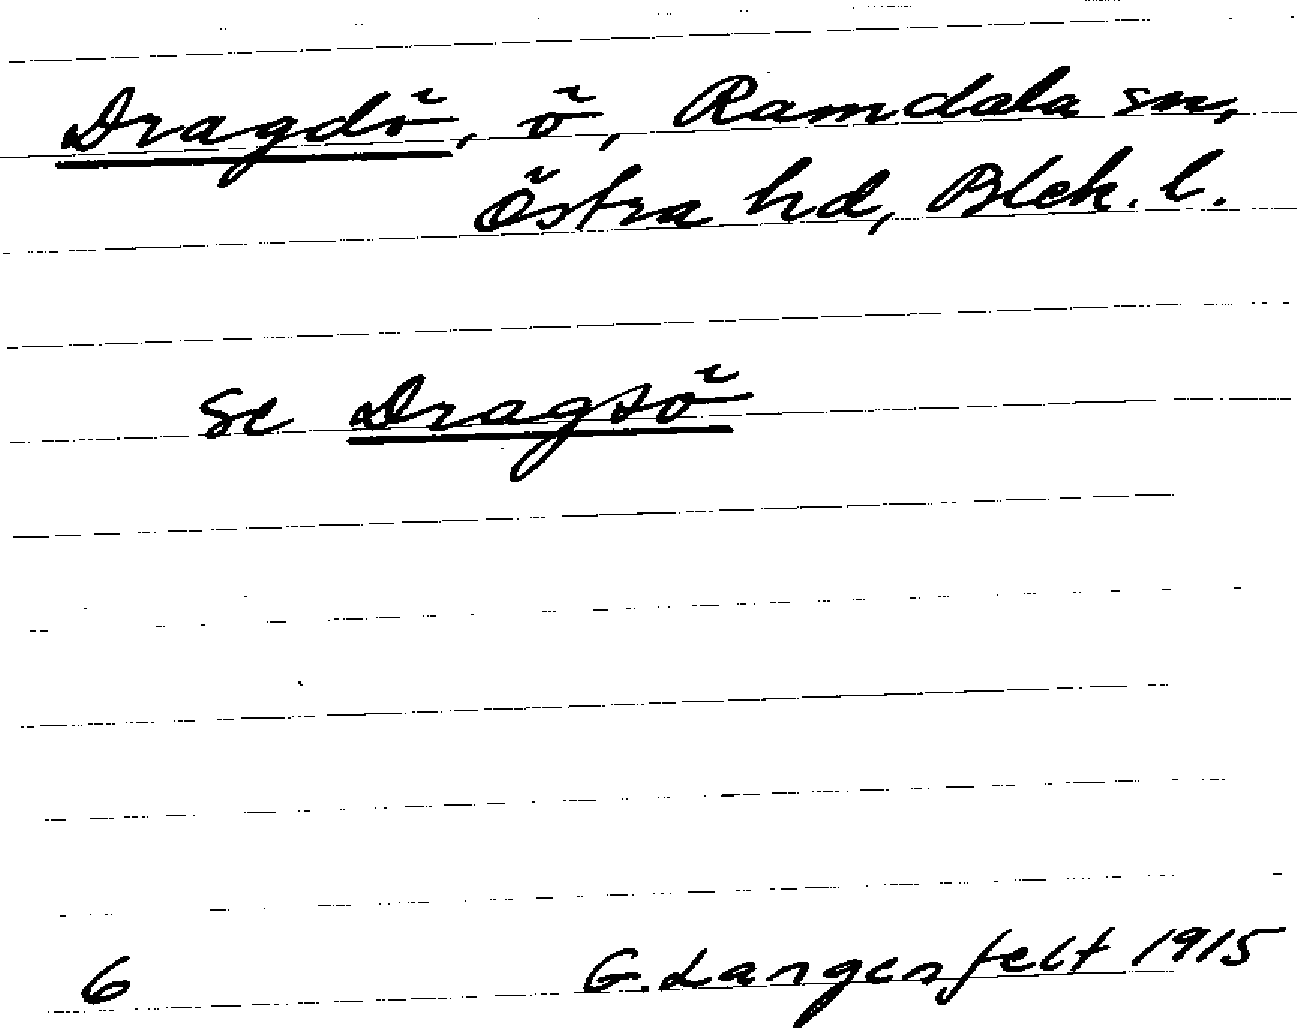 Dragdö, ö, Ramdala sn,
Östra hd, Blek. l.
se Dragsö
6 G. Langenfelt 1915